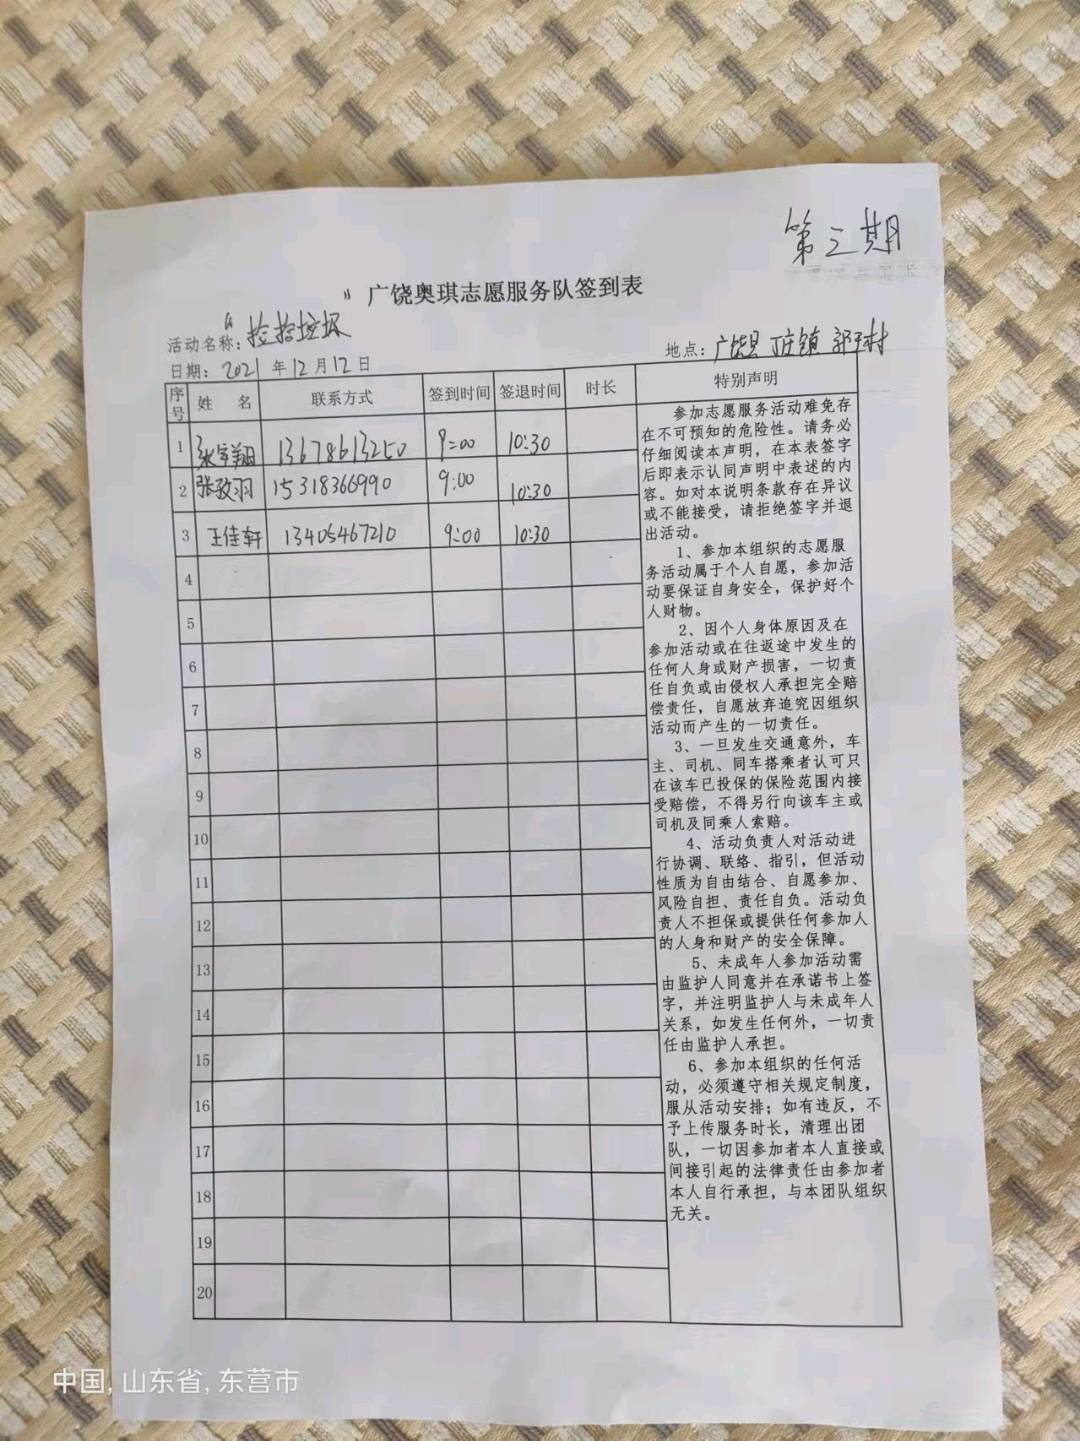 第三期
广饶奥琪志愿服务队签到表
活动名称：“捡拾垃圾”
地点：广饶县丁庄镇
日期：2021年12月12日
序号 姓 名 联系方式 签到时间 签退时间 时长 特别声明
1 13678613250 9:00 10:30
2 张孜羽 15318366990 9:00 10:30
3 王佳轩 13405467210 9:00 10:30
4
5
6
7
8
9
10
11
12
13
14
15
16
17
18
19
20
参加志愿服务活动难免存
在不可预知的危险性。请务必
仔细阅读本声明，在本表签字
后即表示认同声明中表述的内
容。如对本说明条款存在异议
或不能接受，请拒绝签字并退
出活动。
1、参加本组织的志愿服
务活动属于个人自愿，参加活
动要保证自身安全，保护好个
人财物。
2、因个人身体原因及在
参加活动或在往返途中发生的
任何人身或财产损害，一切责
任自负或由侵权人承担完全赔
偿责任，自愿放弃追究因组织
活动而产生的一切责任。
3、一旦发生交通意外，车
主、司机、同车搭乘者认可只
在该车已投保的保险范围内接
受赔偿，不得另行向该车主或
司机及同乘人索赔。
4、活动负责人对活动进
行协调、联络、指引，但活动
性质为自由结合、自愿参加、
风险自担、责任自负。活动负
责人不担保或提供任何参加人
的人身和财产的安全保障。
5、未成年人参加活动需
由监护人同意并在承诺书上签
字，并注明监护人与未成年人
关系，如发生任何外，一切责
任由监护人承担。
6、参加本组织的任何活
动，必须遵守相关规定制度，
服从活动安排；如有违反，不
予上传服务时长，清理出团
队，一切因参加者本人直接或
间接引起的法律责任由参加者
本人自行承担，与本团队组织
无关。
中国，山东省，东营市